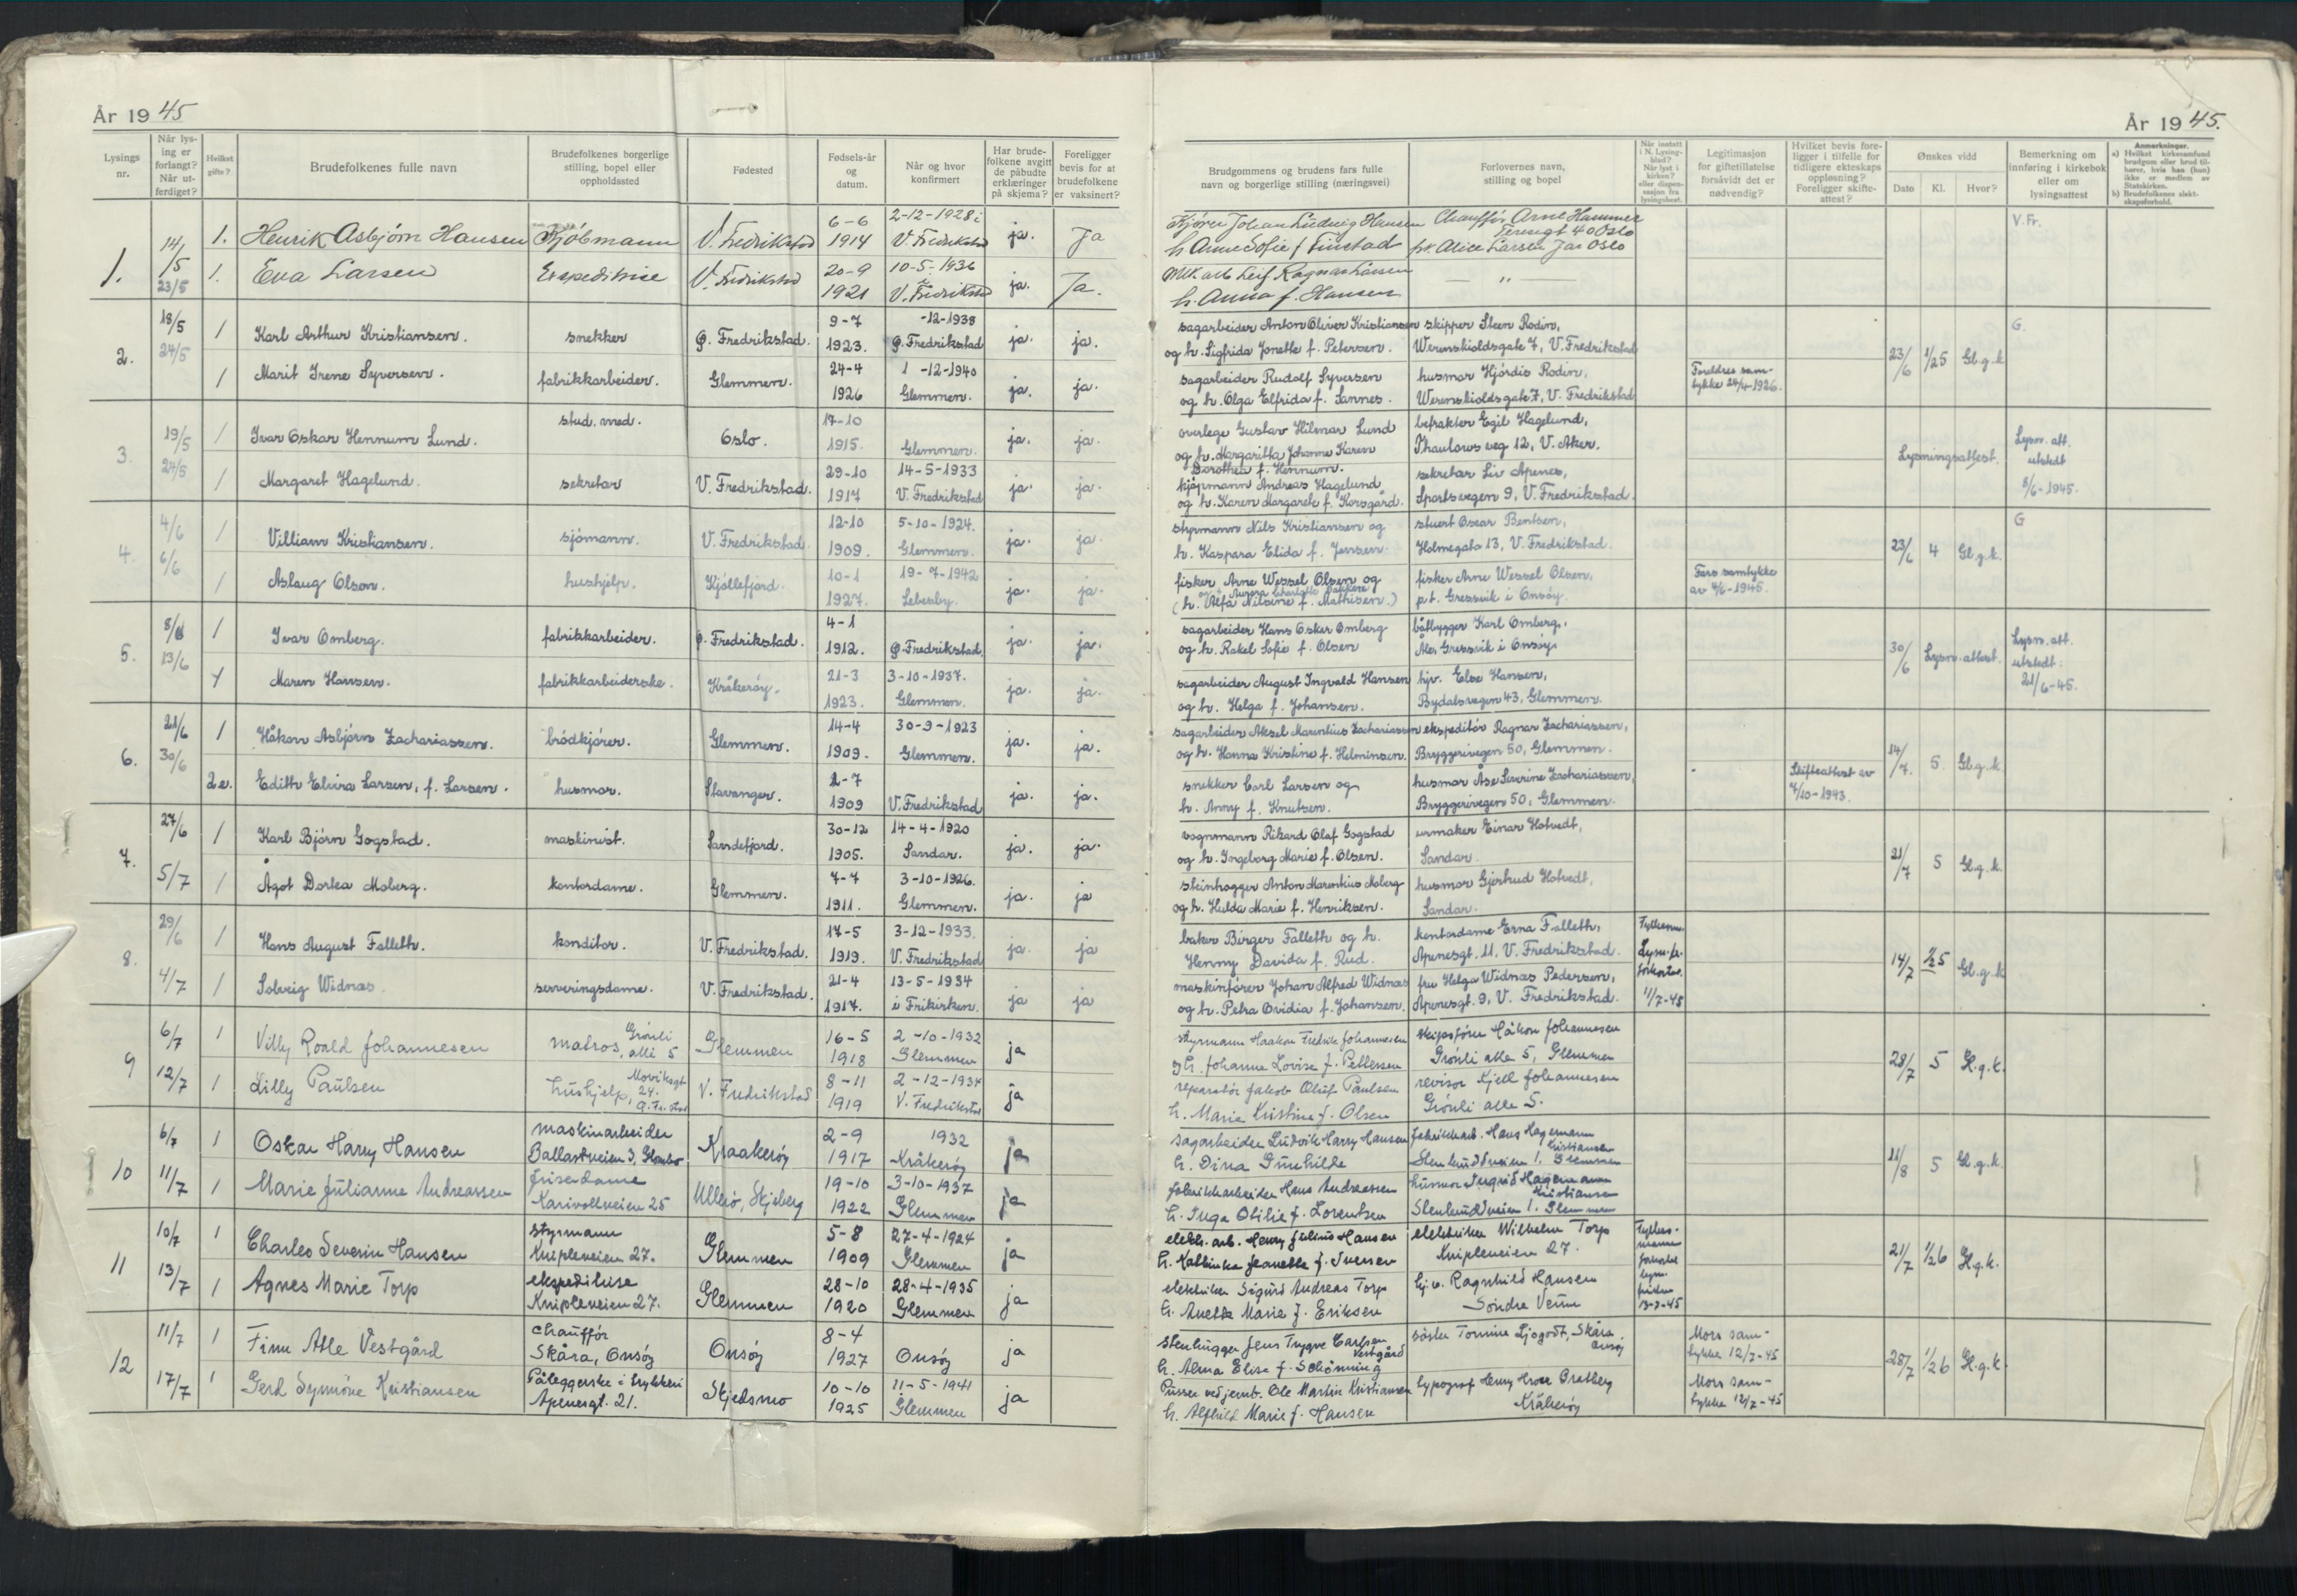 År 19 45
År 19 45.
Lysings nr.
Når lysing er forlangt? Når utferdiget?
Hvilket gifte?
Brudefolkenes fulle navn
Brudefolkenes borgerlige stilling, bopel eller oppholdssted
Fødested
Fødsels-år og datum.
Når og hvor konfirmert
Har brudefolkene avgitt de påbudte erklæringer på skjema?
Foreligger bevis for at brudefolkene er vaksinert?
Brudgommens og brudens fars fulle navn og borgerlige stilling (næringsvei)
Forlovernes navn, stilling og bopel
Når innsatt i N. Lysingblad? Når lyst i kirken? eller dispensasjon fra lysningsbest.
Legitimasjon for giftetillatelse forsåvidt det er nødvendig?
Hvilket bevis foreligger i tilfelle for tidligere ekteskaps oppløsning? Foreligger skifteattest?
Ønskes vidd
Dato Kl. Hvor?
Bemerkning om innføring i kirkebok eller om lysingsattest
Anmerkninger.
a) Hvilket kirkesamfund brudgom eller brud tilhører, hvis han (hun) ikke er medlem av Statskirken.
b) Brudefolkenes slektskapsforhold.
1. 14/5 1. Henrik Asbjörn Hansen Kjöbmann V. Fredrikstad 6-6 1914 2-12-1928 i V. Fredrikstad ja. Ja
Johan Ludvig Hansen h. Anne Sofie f. Finstad Chaufför Arne Hammer Teresegt 40 Oslo V. Fr.
23/5 1. Eva Larsen Expeditrise V. Fredrikstad 20-9 1921 10-5-1936 V. Fredrikstad ja. Ja.
arb Leif Ragnar Larsen h. Anna f. Hansen frk Alice Larsen Jar Oslo
2. 18/5 1 Karl Arthur Kristiansen. snekker Ø. Fredrikstad. 9-7 1923. -12-1938 Ø. Fredrikstad ja. ja.
sagarbeider Anton Oliver Kristiansen og h. Sigfrida Jonette f. Petersen. skipper Steen Rodin, Werenskioldsgate 7, V. Fredrikstad 23/6 1/2 5 Gl.g.k G.
24/5 1 Marit Irene Syversen. fabrikkarbeider. Glemmen. 24-4 1926 1 -12-1940 Glemmen. ja. ja.
sagarbeider Rudolf Syversen og h. Olga Elfrida f. Sannes. husmor Hjördis Rodin, Werenskioldsgate 7, V. Fredrikstad Foreldres samtykke 24/4-1926.
3. 19/5 1 Ivar Oskar Hennum Lund. stud. med. Oslo. 17-10 1915. Glemmen. ja. ja.
overlege Gustav Hilmar Lund og h. Margaritta Johanne Karen Dorothea f. Hennum. befrakter Egil Hagelund, Thaulows veg 12, V. Aker. Lysningsattest. Lysn. att. utstedt 8/6-1945.
24/5 1 Margaret Hagelund. sekretær V. Fredrikstad. 29-10 1917 14-5-1933 V. Fredrikstad ja. ja.
kjöpmann Andreas Hagelund og h. Karen Margarete f. Korsgård. sekretær Liv Apenes, Sportsvegen 9, V. Fredrikstad.
4. 4/6 1 Villiam Kristiansen. sjömann. V. Fredrikstad. 12-10 1909. 5-10-1924. Glemmen. ja. ja.
styrmann Nils Kristiansen og h. Kaspara Elida f. Jensen stuert Oscar Bentsen, Holmegata 13, V. Fredrikstad. 23/6 4 Gl.g.k. G
6/6 1 Aslaug Olsen. hushjelp. Kjöllefjord. 10-1 1927. 19-7-1942 Lebesby. ja. ja.
fisker Arne Wessel Olsen og (h. Alfa Nilsine f. Mathisen.) fisker Arne Wessel Olsen, p.t. Gressvik i Onsöy. Fars samtykke av 4/6-1945.
5. 8/6 1 Ivar Omberg. fabrikkarbeider. Ø. Fredrikstad. 4-1 1912. Ø. Fredrikstad. ja. ja.
sagarbeider Hans Oskar Omberg og h. Rakel Sofie f. Olsen båtbygger Karl Omberg, Gressvik i Onsöy. 30/6 Lysn. attest. Lysn. att. utstedt 21/6-45.
13/6 1 Maren Hansen. fabrikkarbeiderske. Kråkeröy. 21-3 1923. 3-10-1937. Glemmen. ja. ja.
sagarbeider August Ingvald Hansen og h. Helga f. Johansen. hjv. Else Hansen, Bydalsvegen 43, Glemmen.
6. 21/6 1 Håkon Asbjörn Zachariassen. brödkjörer. Glemmen. 14-4 1909. 30-9-1923 Glemmen. ja. ja.
sagarbeider Aksel Marentius Zachariassen og h. Hanna Kristine f. Helminsen. ekspeditör Ragnar Zachariassen, Bryggerivegen 50, Glemmen. 14/7. 5. Gl.g.k.
30/6 2e. Edith Elvira Larsen, f. Larsen. husmor. Stavanger. 2-7 1909 V. Fredrikstad ja. ja.
snekker Carl Larsen og h. Anny f. Knutsen. husmor Åse Severine Zachariassen, Bryggerivegen 50, Glemmen. Skifteattest av 7/10-1943.
7. 27/6 1 Karl Björn Gogstad. maskinist. Sandefjord. 30-12 1905. 14-4-1920 Sandar. ja. ja.
vognmann Rikard Olaf Gogstad og h. Ingeborg Marie f. Olsen. urmaker Einar Hotvedt, Sandar. 21/7 5 Gl.g.k.
5/7 1 Ågot Dortea Moberg. kontordame. Glemmen. 7-7 1911. 3-10-1926. Glemmen. ja. ja
steinhogger Anton Marentius Moberg og h. Hulda Marie f. Henriksen. husmor Gjertrud Hotvedt, Sandar.
8. 29/6 1 Hans August Falleth. konditor. V. Fredrikstad. 17-5 1919. 3-12-1933. V. Fredrikstad ja. ja
baker Birger Falleth og h. Henny Davida f. Rud. kontordame Erna Falleth, Apenesgt. 11, V. Fredrikstad. 11/7-45 14/7 1/2 5 Gl.g.k
4/7 1 Solveig Widnæs. serveringsdame. V. Fredrikstad. 21-4 1917. 13-5-1934 i Frikirken. ja ja
maskinförer Johan Alfred Widnæs og h. Petra Ovidia f. Johansen. fru Helga Widnæs Pedersen, Apenesgt. 9, V. Fredrikstad.
9 6/7 1 Villy Roald Johannesen matros, Grönli allé 5 Glemmen 16-5 1918 2-10-1932 Glemmen ja
styrmann Haakon Fredrik Johannesen h. Johanne Lovise f. Pettersen skipsförer Håkon Johannesen Grönli alle 5, Glemmen 28/7 5 Gl.g.k.
12/7 1 Lilly Paulsen hushjelp, 24. V. Fredrikstad 8-11 1919 2-12-1934 V. Fredrikstad ja
reparatör Jakob Oluf Paulsen h. Marie Kristine f. Olsen revisor Kjell Johannesen Grönli alle 5.
10 6/7 1 Oskar Harry Hansen maskinarbeider Ballastveien 3, Kraakeröy 2-9 1917 1932 Kråkeröy ja
sagarbeider Ludvik Harry Hansen h. Dina Gunhilde fabrikkarb. Hans Hagemann Kristiansen 1. Glemmen 11/8 5 Gl.g.k.
11/7 1 Marie Julianne Andreassen frisердame Karivollveien 25 Ullerö, Skjeberg 19-10 1922 3-10-1937 Glemmen ja
fabrikkarbeider Hans Andreassen h. Inga Otilie f. Lorentsen husmor Ingrid Hagemann Kristiansen 1. Glemmen
11 10/7 1 Charles Severin Hansen styrmann Knipleveien 27. Glemmen 5-8 1909 27-4-1924 Glemmen ja
elektr. arb. Henry Julius Hansen h. Kathinka Jeanette f. Iversen elektriker Wilhelm Torp Knipleveien 27. 13-7-45 21/7 1/2 6 Gl.g.k.
13/7 1 Agnes Marie Torp ekspeditrise Knipleveien 27. Glemmen 28-10 1920 28-4-1935 Glemmen ja
elektriker Sigurd Andreas Torp h. Anette Marie f. Eriksen hj.v. Ragnhild Hansen Söndre
12 11/7 1 Finn Atle Vestgård chaufför Skåra, Onsöy Onsöy 8-4 1927 Onsöy ja
stenhugger Jens Trygve Carlsen Vestgård h. Alma Elise f. Schönning Tomine Ljogodt, Skåra Onsöy Mors samtykke 12/7-45 28/7 1/2 6 Gl.g.k
17/7 1 Gerd Synnöve Kristiansen Påleggerske i trykkeri Apenesgt. 21. Skjedsmo 10-10 1925 11-5-1941 Glemmen ja
Pusser ved jernb. Ole Martin Kristiansen h. Alfhild Marie f. Hansen typograf Henry Kråkeröy Mors samtykke 12/7-45